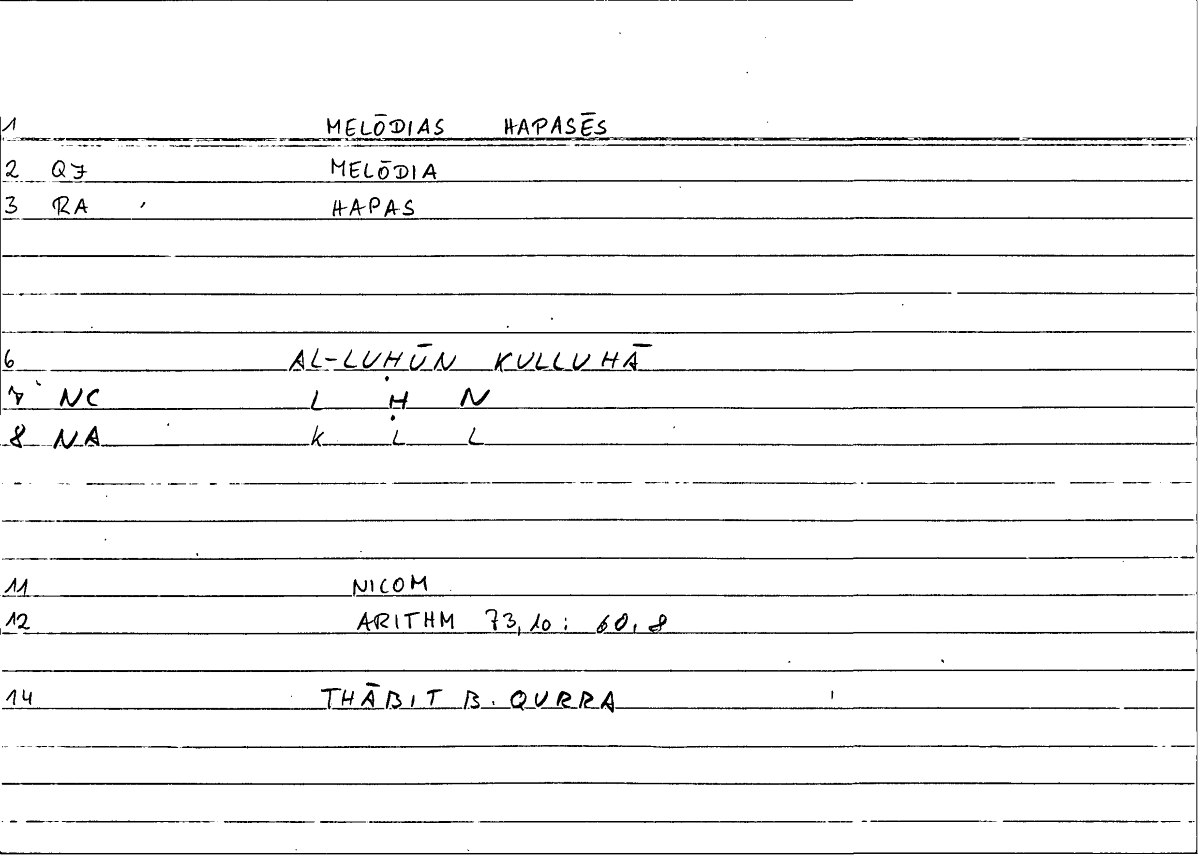 1 MELŌDIAS HAPASĒS
2 QJ MELŌDIA
3 RA HAPAS
6 AL-LUḤŪN KULLUHĀ
7 NC L Ḥ N
8 NA K L L
11 NICOM
12 ARITHM 73,10: 60,8
14 THĀBIT B. QURRA